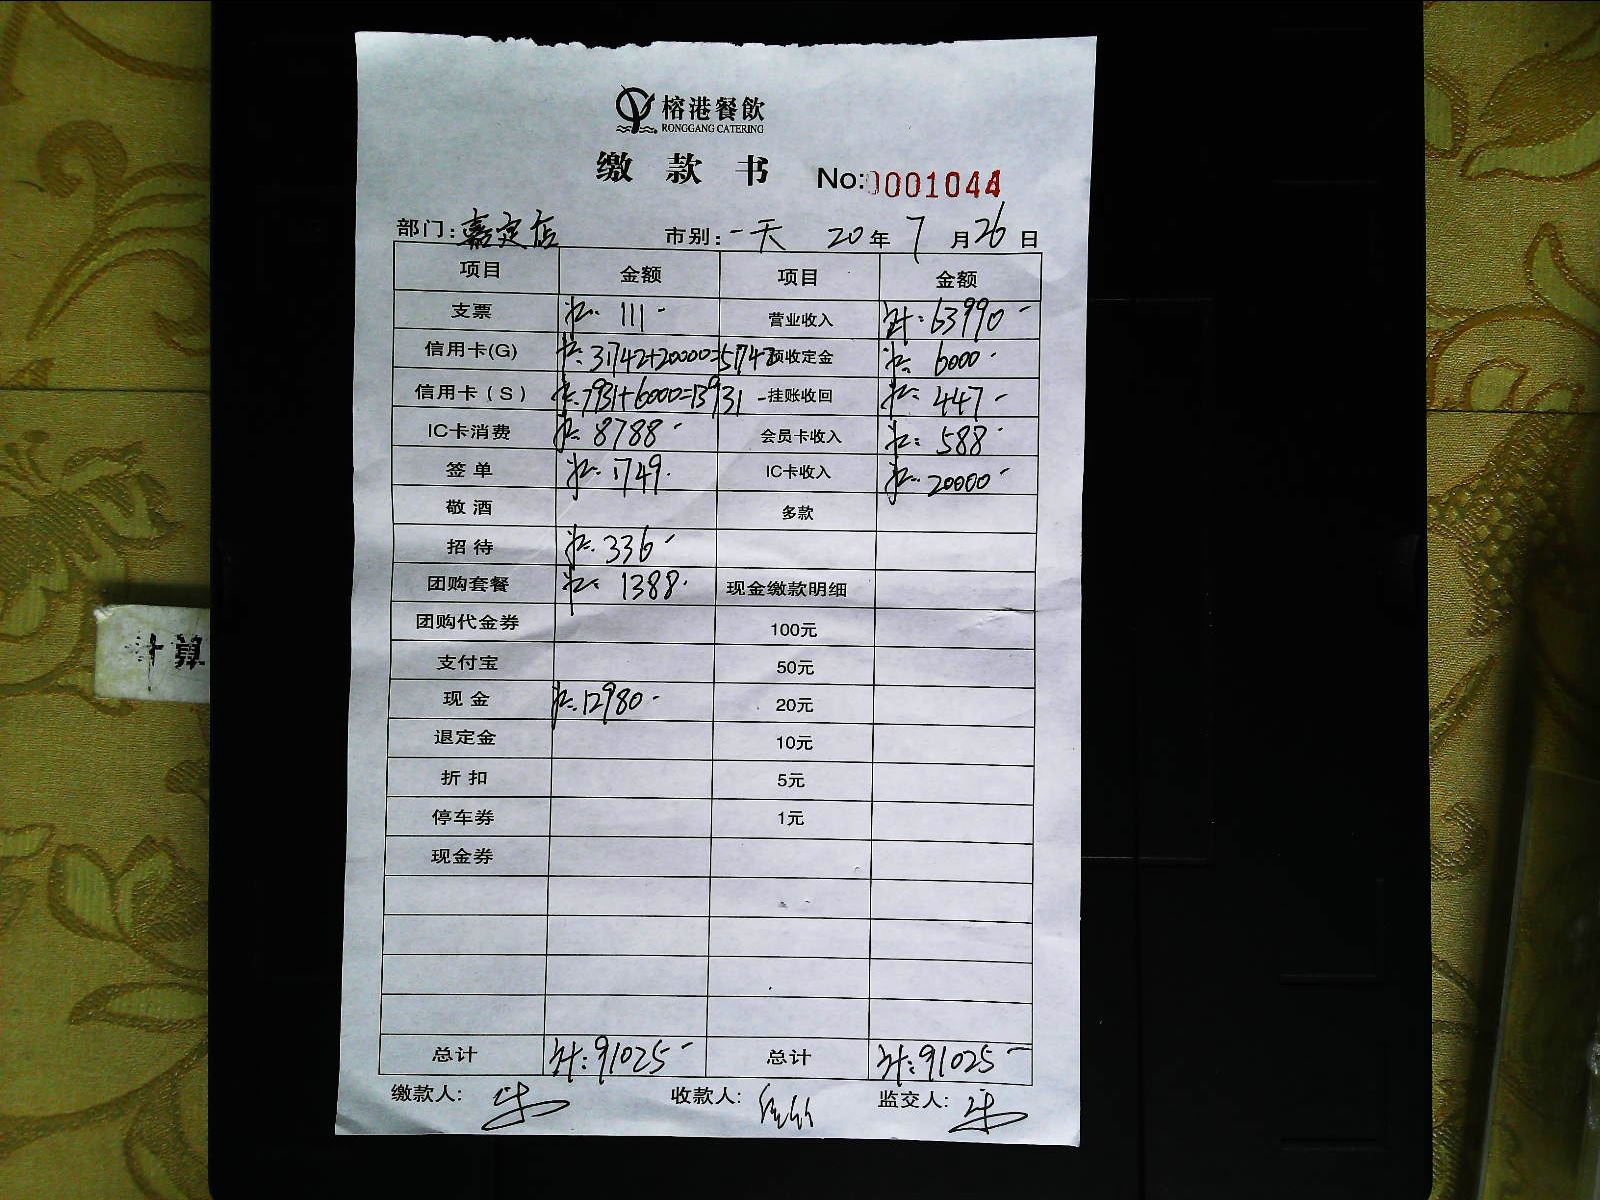 榕港餐飲
RONGGANG CATERING
缴款书 No:0001044
部门:嘉定店 市别:一天 20年7月26日
项目 金额 项目 金额
支票 111- 营业收入 计:63990-
信用卡(G) 31742+20000=51742 预收定金 6000-
信用卡(S) 7931+6000=13931- 挂账收回 447-
IC卡消费 8788- 会员卡收入 588-
签单 1749. IC卡收入 20000-
敬酒 多款
招待 336-
团购套餐 1388. 现金缴款明细
团购代金券 100元
支付宝 50元
现金 12980- 20元
退定金 10元
折扣 5元
停车券 1元
现金券
总计 计:91025- 总计 计:91025-
缴款人: 收款人: 监交人:
计算